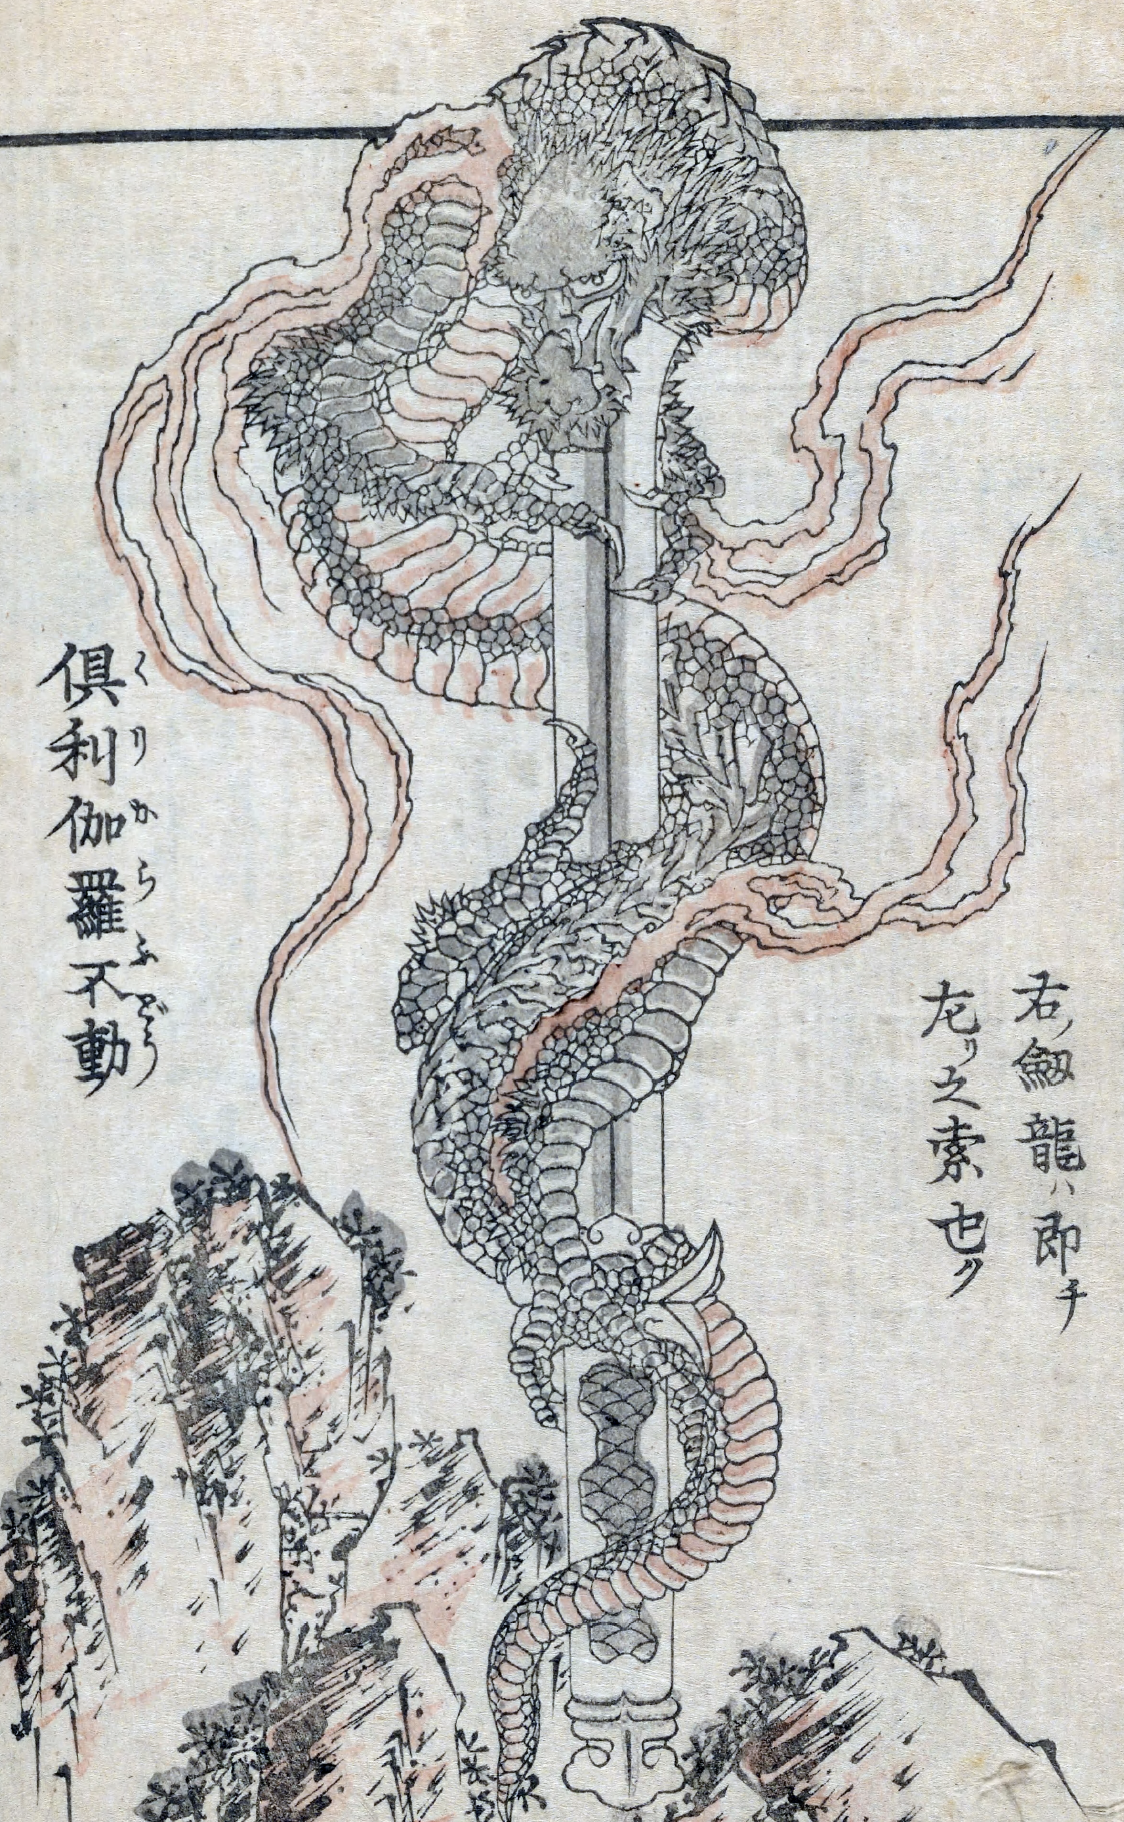 右ノ劔龍ハ即チ
左リ之索也
倶利伽羅不動
くりからふどう